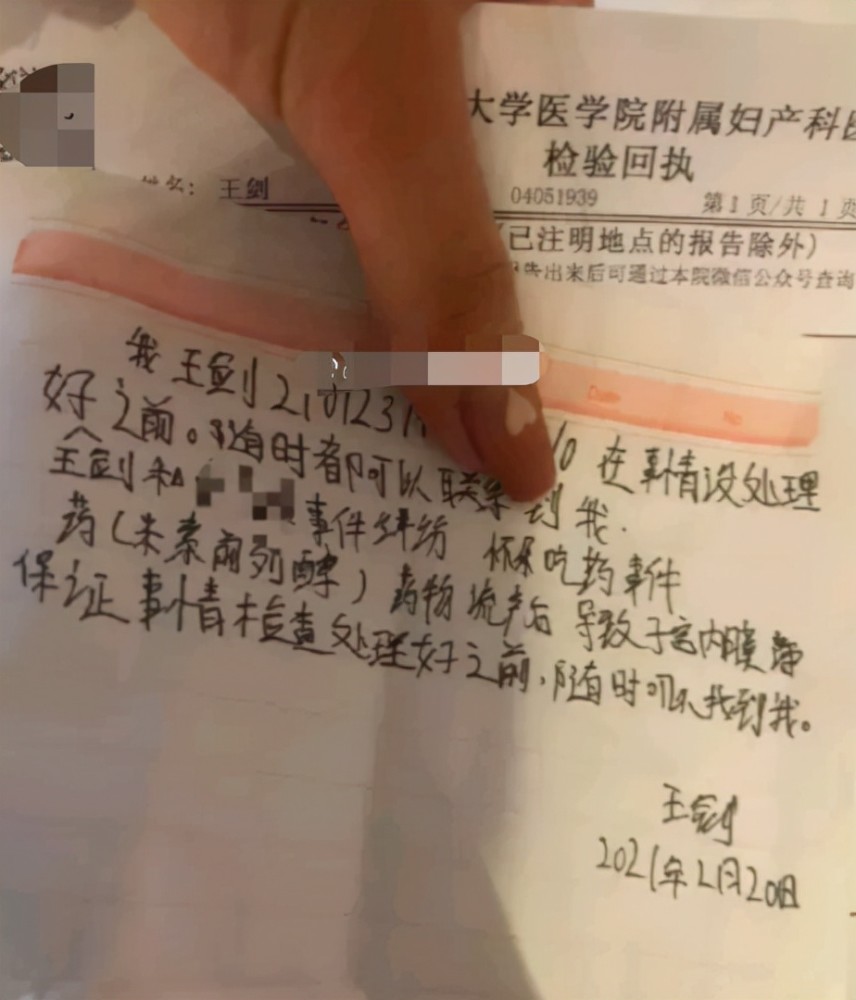 大学医学院附属妇产科医
检验回执
姓名： 王剑
04051939 第1页/共 1 页
（已注明地点的报告除外）
告出来后可通过本院微信公众号查询
我王剑
在事情没处理
好之前。随时都可以联系到我.
王剑和 事件纠纷 怀孕吃药事件
药(米索前列醇) 药物流产后 导致子宫内膜薄
保证事情检查处理好之前,随时可以找到我。
王剑
2021年2月20日